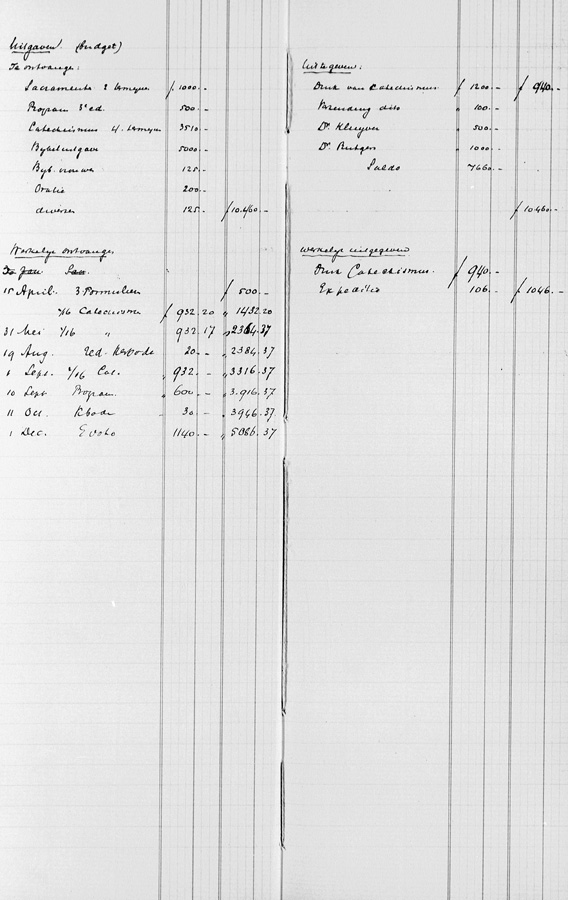 Uitgaven (budget)
Te ontvangen:
Sacramenta 2 f 1000.–
Program 3e ed. 500.–
Catechismus 4. 3510–
Bybeluitgave 5000.–
Byb. vrouwen 125.–
Oratie 200.–
diversen 125.– f 10.460.–
Werkelyk ontvangen
15 April. 3 Formulieren f 500.–
1/16 Catechismus f 932.20 " 1432.20
31 Mei 1/16 " 932.17 " 2364.37
19 Aug. red. Kerbode 20.– " 2384.37
1 Sept. 1/16 Cat. " 932.– " 3316.37
10 Sept Program. " 600.– " 3.916.37
11 Oct. Kbode 30.– " 3946.37
1 Dec. E voto 1140.– " 5086.37
Uit te geven:
Druk van Catechismus f 1200.– f 940.–
Verzending dito " 100.–
Dr. Kluyver " 500.–
Dr. Rutgers " 1000.–
Saldo 7660.–
f 10460.–
Werkelyk uitgegeven
Druk Catechismus. f 940.–
Expeditie 106.– f 1046.–